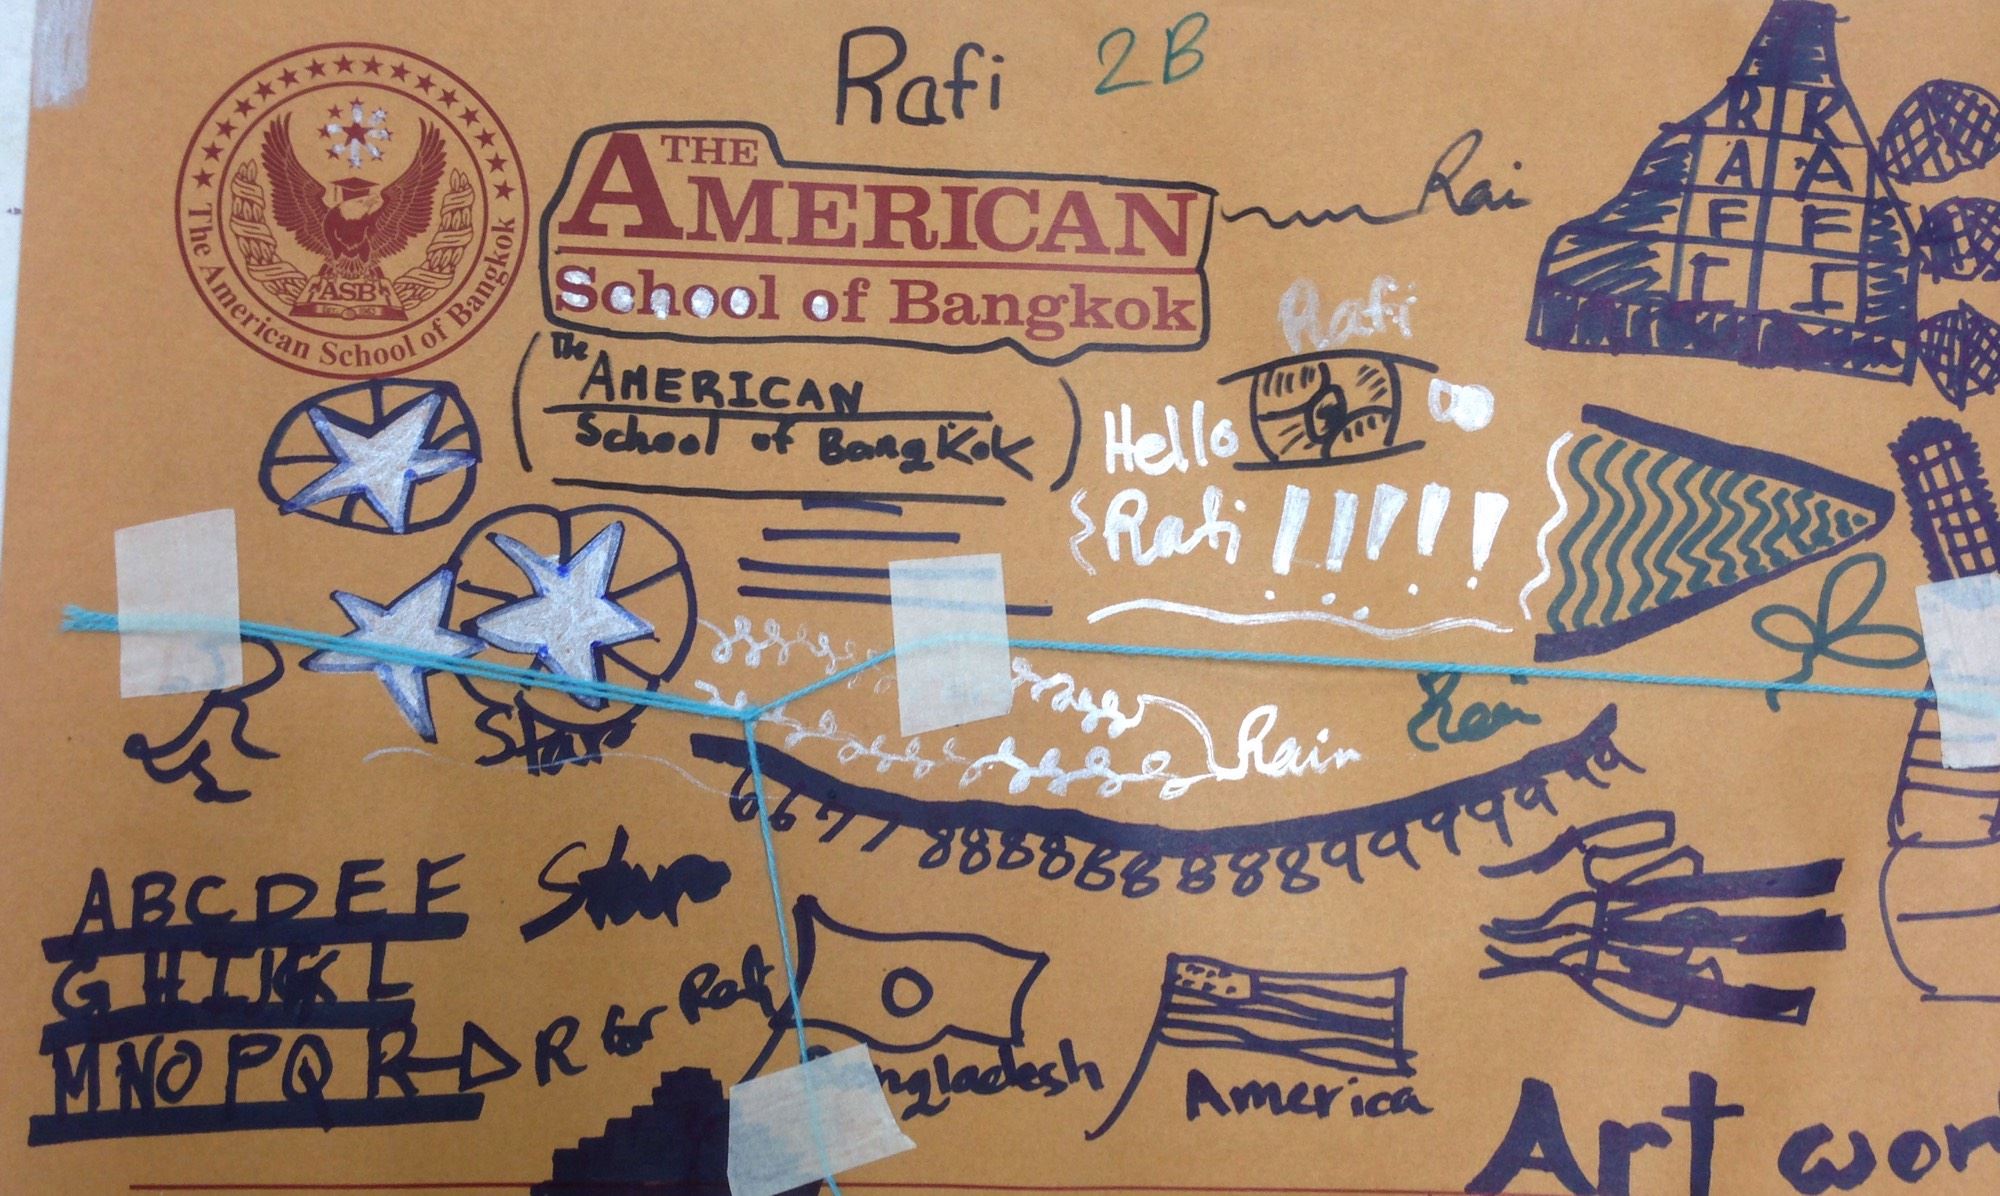 Rafi 2B
The American School of Bangkok
ASB
THE
AMERICAN
School of Bangkok
Rai
R R
A A
F F
I I
Rafi
The
AMERICAN
School of Bangkok
Hello
Rafi !!!!!
Star
Rain
66778888888888899999999
ABCDEF
GHIJKL
MNOPQR
R for Rafi
Bangladesh
America
Art